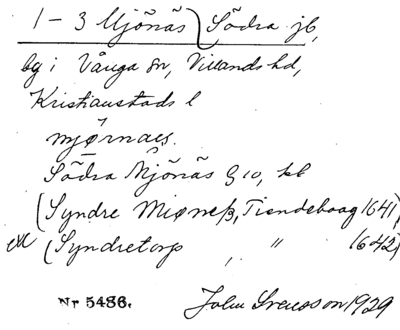 1-3 Mjönäs) Södra jb,
by i Vånga sn, Villands hd,
Kristianstads l
mjø̀rnæs.
Södra Mjönäs G 10, kb
(Syndre Miøneß, Tiendeboog 1641)
(Syndretorp, " 1642)
Nr 5486. John Svensson 1929